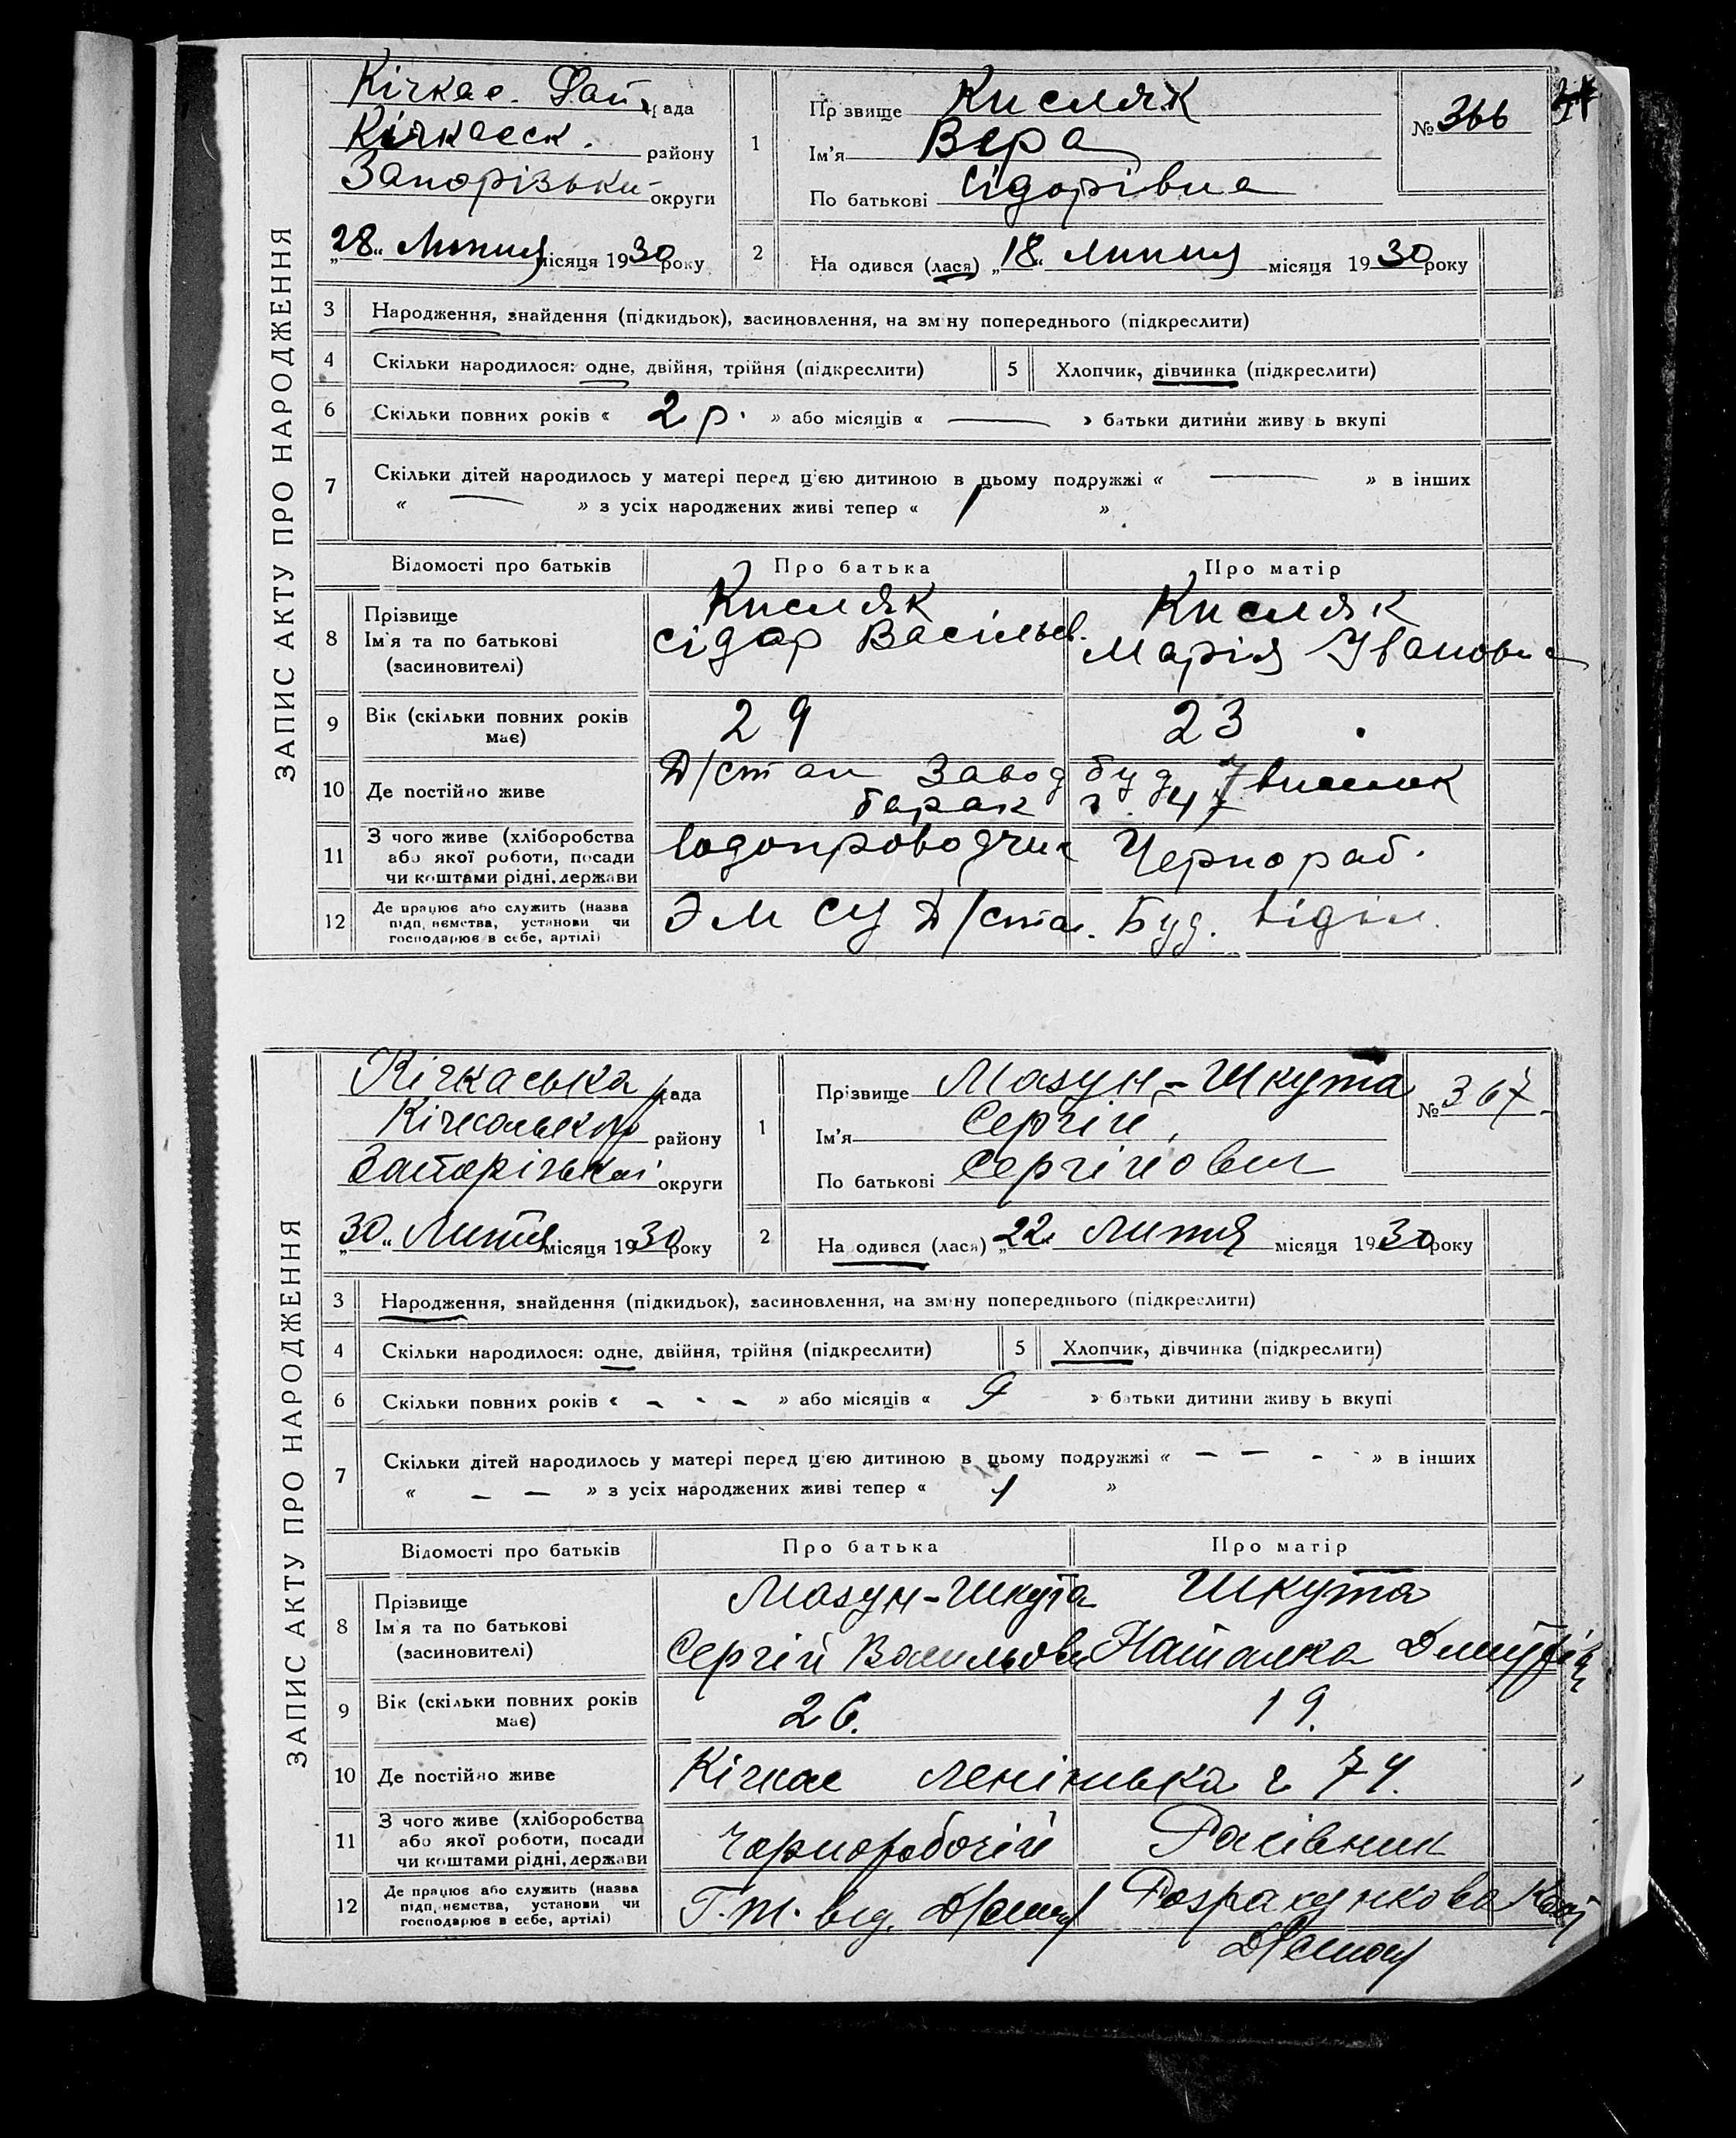 ЗАПИС АКТУ ПРО НАРОДЖЕННЯ
Кічкас. рада
Кічкасск. району
Запорізьки округи
„28“ Липня місяця 1930 року
1
Пр звище Кисляк
Ім'я Вера
По батькові Сідорівна
№ 366
2
На одився (лася) „18“ липня місяця 1930 року
3 Народження, знайдення (підкидьок), засиновлення, на зм ну попереднього (підкреслити)
4 Скільки народилося: одне, двійня, трійня (підкреслити)
5 Хлопчик, дівчинка (підкреслити)
6 Скільки повних років « 2 р. » або місяців « — » батьки дитини живу ь вкупі
7 Скільки дітей народилось у матері перед ц'єю дитиною в цьому подружжі « — » в інших
« — » з усіх народжених живі тепер « 1 »
Відомості про батьків Про батька Про матір
8 Прізвище
Ім'я та по батькові
(засиновителі)
Кисляк
Сідор Васільев.
Кисляк
Марія Ивановна
9 Вік (скільки повних років
має)
29
23
10 Де постійно живе
Д/стан Завод буд 7 виселок
барак г. 47
11 З чого живе (хліборобства
або якої роботи, посади
чи коштами рідні, держави
водопроводчик
Чернораб.
12 Де працює або служить (назва
підп, ємства, установи чи
господарює в себе, артілі)
ЭМ СЦ Д/стан.
Буд. відділ.
ЗАПИС АКТУ ПРО НАРОДЖЕННЯ
Кічкаська рада
Кічкаського району
Запорізької округи
„30“ Липня місяця 1930 року
1
Прізвище Мазун-Шкута
Ім'я Сергій,
По батькові Сергійович
№ 367
2
На одився (лася) „22“ Липня місяця 1930 року
3 Народження, знайдення (підкидьок), засиновлення, на зміну попереднього (підкреслити)
4 Скільки народилося: одне, двійня, трійня (підкреслити)
5 Хлопчик, дівчинка (підкреслити)
6 Скільки повних років « - - - » або місяців « 9 » батьки дитини живу ь вкупі
7 Скільки дітей народилось у матері перед ц'єю дитиною в цьому подружжі « — — - » в інших
« — — » з усіх народжених живі тепер « 1 »
Відомості про батьків Про батька Про матір
8 Прізвище
Ім'я та по батькові
(засиновителі)
Мазун-Шкута
Сергій Васильов
Шкута
Наталка Дмитрів
9 Вік (скільки повних років
має)
26.
19.
10 Де постійно живе
Кічкас Ленінська г 74.
11 З чого живе (хліборобства
або якої роботи, посади
чи коштами рідні, держави
Чорноробочій
Рахівник
12 Де працює або служить (назва
підп, ємства, установи чи
господарює в себе, артілі)
Г.Т. від. Д/стан
Розрахункова Кон
Д/стан